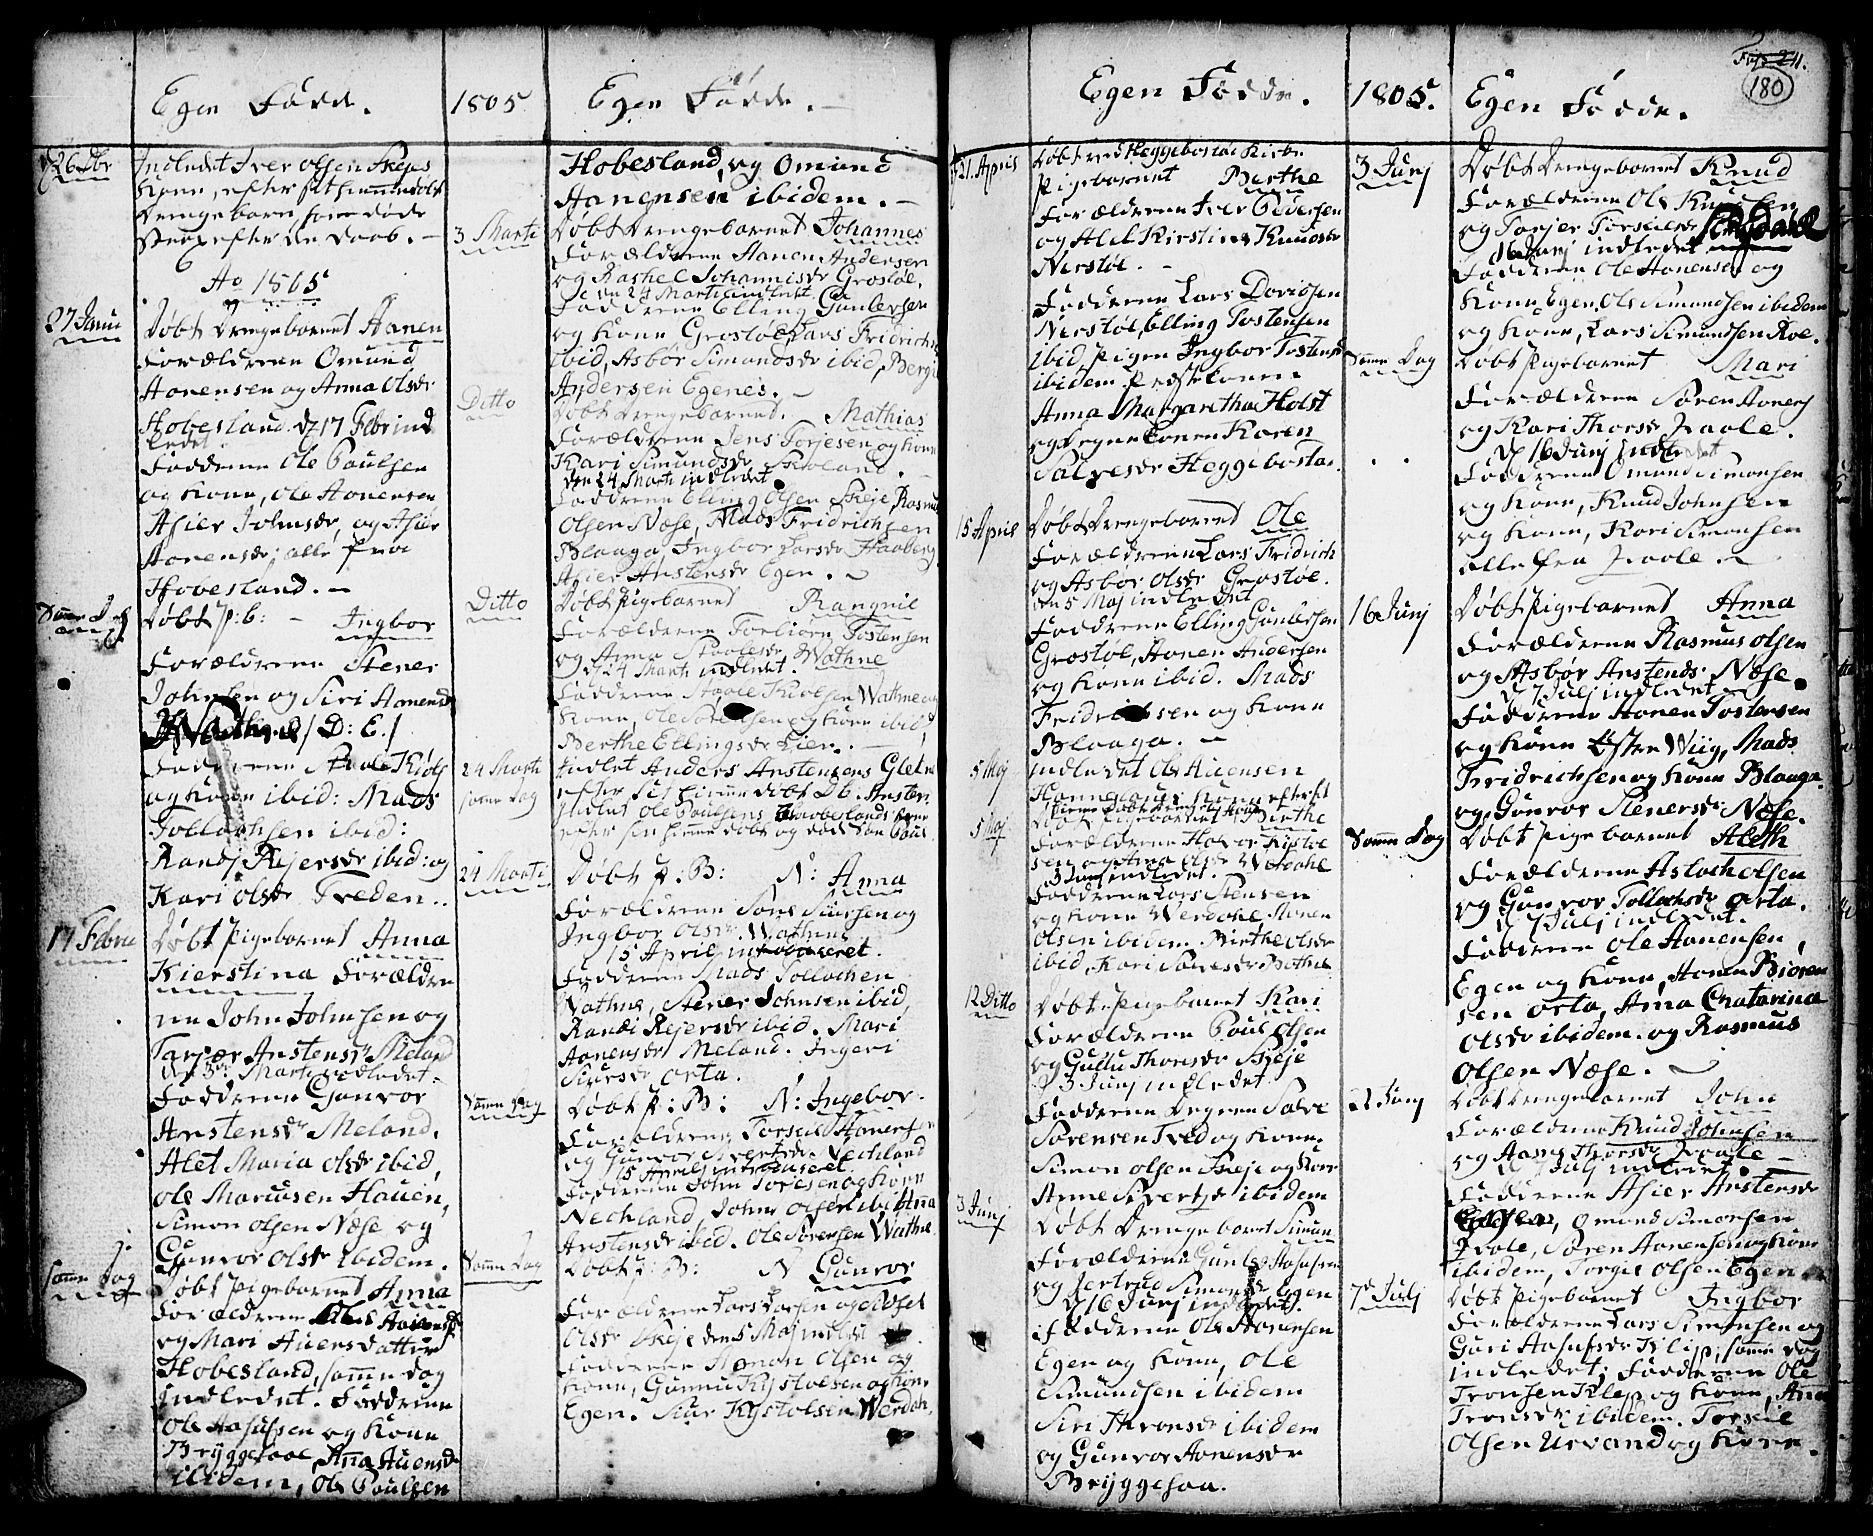 Egen Fødde.
1805
Egen Fødde.
d 26 Xbr
Indledet Iver Olsen Skejes
Kone, efter sit hiemmedøbt
Drengebarn, som døde
strax efter de Daab.
Ao 1805
27 Janu
Døbt Drengebarnet Aanen
Forældrene Omund
Aonensen og Anna Olsdr
Hobesland d 17 Febr ind
ledet
Fadderne Ole Poulsen
og Kone, Ole Aonensen
Asier Johnsdr, og Asier
Aonensdr, alle fra
Hobesland.
Samme Dag
Døbt P: b: Ingbor
Forældrene Stener
Johnsen og Siri Aonensdr
Wathne / D: E. /
Fadderne Staale Kiøls
og Kone ibid: Mads
Tollachsen ibid:
Randj Rejersdr ibid: og
Kari Olsdr Treden..
17 Febru
Døbt Pigebarnet Anna
Kierstina Forældre
ne John Johnsen og
Tarjær Anstensdr Meland
den 3de Marti indledet
Fadderne Gunvor
Anstensdr Meland,
Alet Maria Olsdr ibid,
Ole Marcussen Hauen,
Simon Olsen Næse og
Gunvor Olsdr ibidem.
Samme Dag
Døbt Pigebarnet Anna
Forældrene
og Mari Auensdatter
Hobesland, samme dag
Indledet. Fadderne
Ole Aasulfsen og Kone
Bryggesaae, Anna Auensdr
ibidem, Ole Poulsen
Hobesland, og Omund
Aanensen ibidem.
3 Marti
Døbt Drengebarnet Johannes
Forældrene Aanen Andersen
og Rashel Johannisdr Grostøl,
den 24 Marti indledt
Fadderne Elling Gunlefsen
og Kone Grostøl, Lars Fridrichs
ibid, Asbør Simondsdr ibid, Bergit
Andersen Egenes.
Ditto
Døbt Drengebarnet. Mathias
Forældrene Jens Torjesen og Kone
Kari Simundsdr Skoland.
den 24 Marti indledet
Fadderne Elling Olsen Skeje, Rasmus
Olsen Næse, Mads Fridrichsen
Blaaga, Ingbor Larsdr Haaberg
Asier Anstensdr Egen.
Ditto
Døbt Pigebarnet Rangnil
Forældrene Torbiørn Tostensen
og Anna Staalesdr Wathne
d 24 Marti indledet.
Fadderne Staale Kiølsen Wathne og
Kone, Ole Sørensen og Kone ibid,
Berthe Ellingsdr Lien.
24 Marti
Indlet Anders Anstensens Gletne
efter sit hiemmedøbt Db. Ansten
samme Dag
Indlet Ole Poulsens Haabeslands Kone
efter sin hiemmedøbt og død Søn Poul
24 Marti
Døbt P: B: N: Anna
Forældrene Sone Siursen og
Ingbor Olsdr Wathne
15 April introduceret.
Fadderne Mads Tollachsen
Wathne, Stener Johnsen ibid,
Randi Rejersdr ibid. Mari
Aonensdr Meland. Ingeri
Siursdr Orta.
Samme Dag
Døbt P: B: N: Ingebor.
Forældrene Torkiel Aonensen
og Gunvor Sivertsdr Nechland
15 April introduceret.
Fadderne John Torjesen og Kone
Nechland, John Olsen ibid, Anna
Anstensdr ibid. Ole Sørensen Wathne
Samme Dag
Døbt P: B: N Gunvor
Forældrene Lars Larsen og
Olsdr Skeje den 5 Maj indledt
Fadderne Aanon Olsen og
Kone, Gunnu Kystolsen og Kone
Egen. Siur Kystolsen Werdah,
Egen Fødde.
1805.
Egen Fødde.
Fol: 211.
180
d 21. April
Døbt ved Heggebostøe Kirke
Pigebarnet Berthe
Forældrene Iver Pedersen
og Alet Kirstine Knudsdr
Nerstøl.
Fadderne Lars Dovidsen
Nerstøl, Elling Tostensen
ibid, Pigen Ingbor Tostensdr
ibidem Præstekonen
Anna Margaretha Holst
og Degnekonen Karen
Salvesdr Heggebostøe.
15 April
Døbt Drengebarnet Ole
Forældrene Lars Fridrich
og Asbør Olsdr Grostøl.
den 5 Maj indledet
Fadderne Elling Gunlefsen
Grostøl, Aonen Andersen
og Kone ibid. Mads
Fridrichsen og Kone
Blaaga.
5 Maj
Indledet Ole Auensen
Kone efter sit
hiemmedøbt
5 Maj
Døbt Pigebarnet Birthe
Forældrene Halvor Kistol
sen og Anna Olsdr Werdahl
3 Junj indledet.
Fadderne Lars Stensen
og Kone Werdahl, Aonen
Olsen ibidem. Birthe Olsdr
ibid, Kari Sørensdr Bothne
12 Ditto
Døbt Pigebarnet Kari
Forældrene Poul Olsen
og Gullu Thorsdr Skeje
d 3 Junj indledet
Fadderne Degnen Salve
Sørensen Tved og Kone.
Simon Olsen Skeje og Kone
Anne Sivertsdr ibidem
3 Junj
Døbt Drengebarnet Simun
Forældrene Gunlef Aasulfsen
og Jertrud Simonsdr Egen
d 16 Junj indledet.
Fadderne Ole Aonensen
Egen og Kone, Ole
Simundsen ibidem
Siri Thronsdr ibidem
og Gunvor Aonensdr
Bryggesaa.
3 Junj
Døbt Drengebarnet Knud
Forældrene Ole Knudsen
og Torjer Torkielsdr
16 Junj indledet
Fadderne Ole Aonensen og
Kone Egen, Ole Simundsen ibidem
og Kone, Lars Simundsen Roe.
Samme Dag
Døbt Pigebarnet Mari
Forældrene Søren Aonens
og Kari Thorsdr Jvaale.
d 16 Junj indledet
Fadderne Omund Simonsen
og Kone, Knud Johnsen
og Kone, Kari Simonsen
alle fra Jvaale.
16 Junj
Døbt Pigebarnet Anna
Forældrene Rasmus Olsen
og Asbør Anstendr Næse.
d 7 Julj indledet
Fadderne Aonen Tostensen
og Kone Østre Wiig, Mads
Fridrichsen og Kone Blaaga
og Gunvor Stenersdr Næse.
Samme Dag
Døbt Pigebarnet Aleth
Forældrene Aslach Olsen
og Gunvor Tollachsdr Orta.
d 7 Julj indledet.
Fadderne Ole Aonensen,
Egen og Kone, Aonen Biøren
sen Orta, Anna Catarina
Olsdr ibidem. og Rasmus
Olsen Næse.
21 Junj
Døbt Drengebarnet John
Forældrene Knud Johnsen
og Aase Thorsdr Jvaale
d 7 Julj indledet.
Fadderne Asier Anstensdr
Omond Simonsen
Jvale, Søren Aonensen og Kone
ibidem, Torgie Olsen Egen
7de Julj
Døbt Pigebarnet Ingbor
Forældrene Lars Simonsen og
Guri Aasulfsdr Klep, samme Dag
indledet; Fadderne Ole
Tronsen Klep og Kone, Anna
Tronsdr ibidem. Torkiel
Olsen Urvand og Kone.